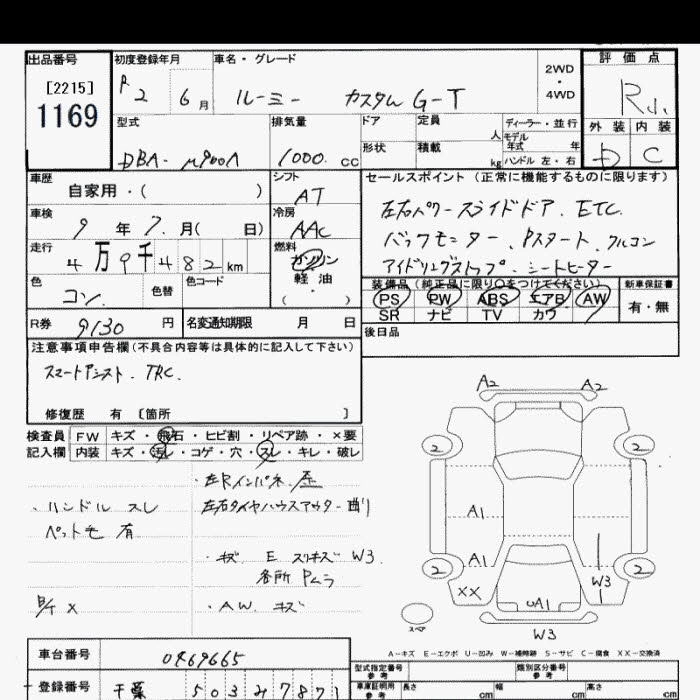 出品番号 初度登録年月 車名・グレード 評価点
[2215]
1169
R 2 6月 ルーミー カスタム G-T 2WD・4WD R小
型式 排気量 ドア 定員 人 ディーラー・並行 外装 内装
モデル年式 年
DBA-M900A 1000 cc 形状 積載 kg ハンドル 左・右 D C
車歴 シフト セールスポイント (正常に機能するものに限ります)
自家用・( ) AT
車検 冷房 左右パワースライドドア. ETC.
9年7月( 日) AAC バックモニター、Pスタート、クルコン
走行 燃料 アイドリングストップ・シートヒーター
4万9千482km ガソリン
軽油
( )
色 色替 色コード 装備品 (純正品に限り○をつけてください) 新車保証書
コン. PS PW ABS エアB AW 有・無
SR ナビ TV カワ
R券 9130円 名変通知期限 月 日 後日品
注意事項申告欄(不具合内容等は具体的に記入して下さい)
スマートアシスト. TRC.
修復歴 有 〔箇所 〕
検査員記入欄 FW キズ・飛石・ヒビ割・リペア跡・×要
内装 キズ・汚レ・コゲ・穴・スレ・キレ・破レ
・左Rインパネ 歪
・ハンドル スレ 左右タイヤハウスアウター曲り
ペット毛 有
・キズ E スリキズ W3
各所 Pムラ
・A.W. キズ
A2 A2
2 2
A1
A1
2 2
XX W3
UA1
W3
スペア
A-キズ E-エクボ U-凹み W-補修跡 S-サビ C-腐食 XX-交換済
車台番号 0469665
登録番号 千葉 503 ム 7871
型式指定番号 参考 類別区分番号 参考
車庫証明用 参考 長さ cm 幅 cm 高さ cm